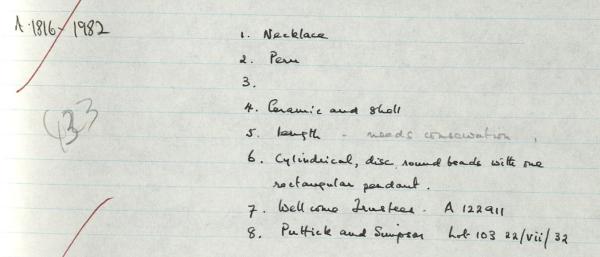 A·1816-1982
1. Necklace
2. Peru
3.
4. Ceramic and shell
5. length - needs conservation.
6. Cylindrical, disc, round beads with one
rectangular pendant.
7. Wellcome Trustees. A 122911
8. Puttick and Simpson Lot 103 22/vii/32